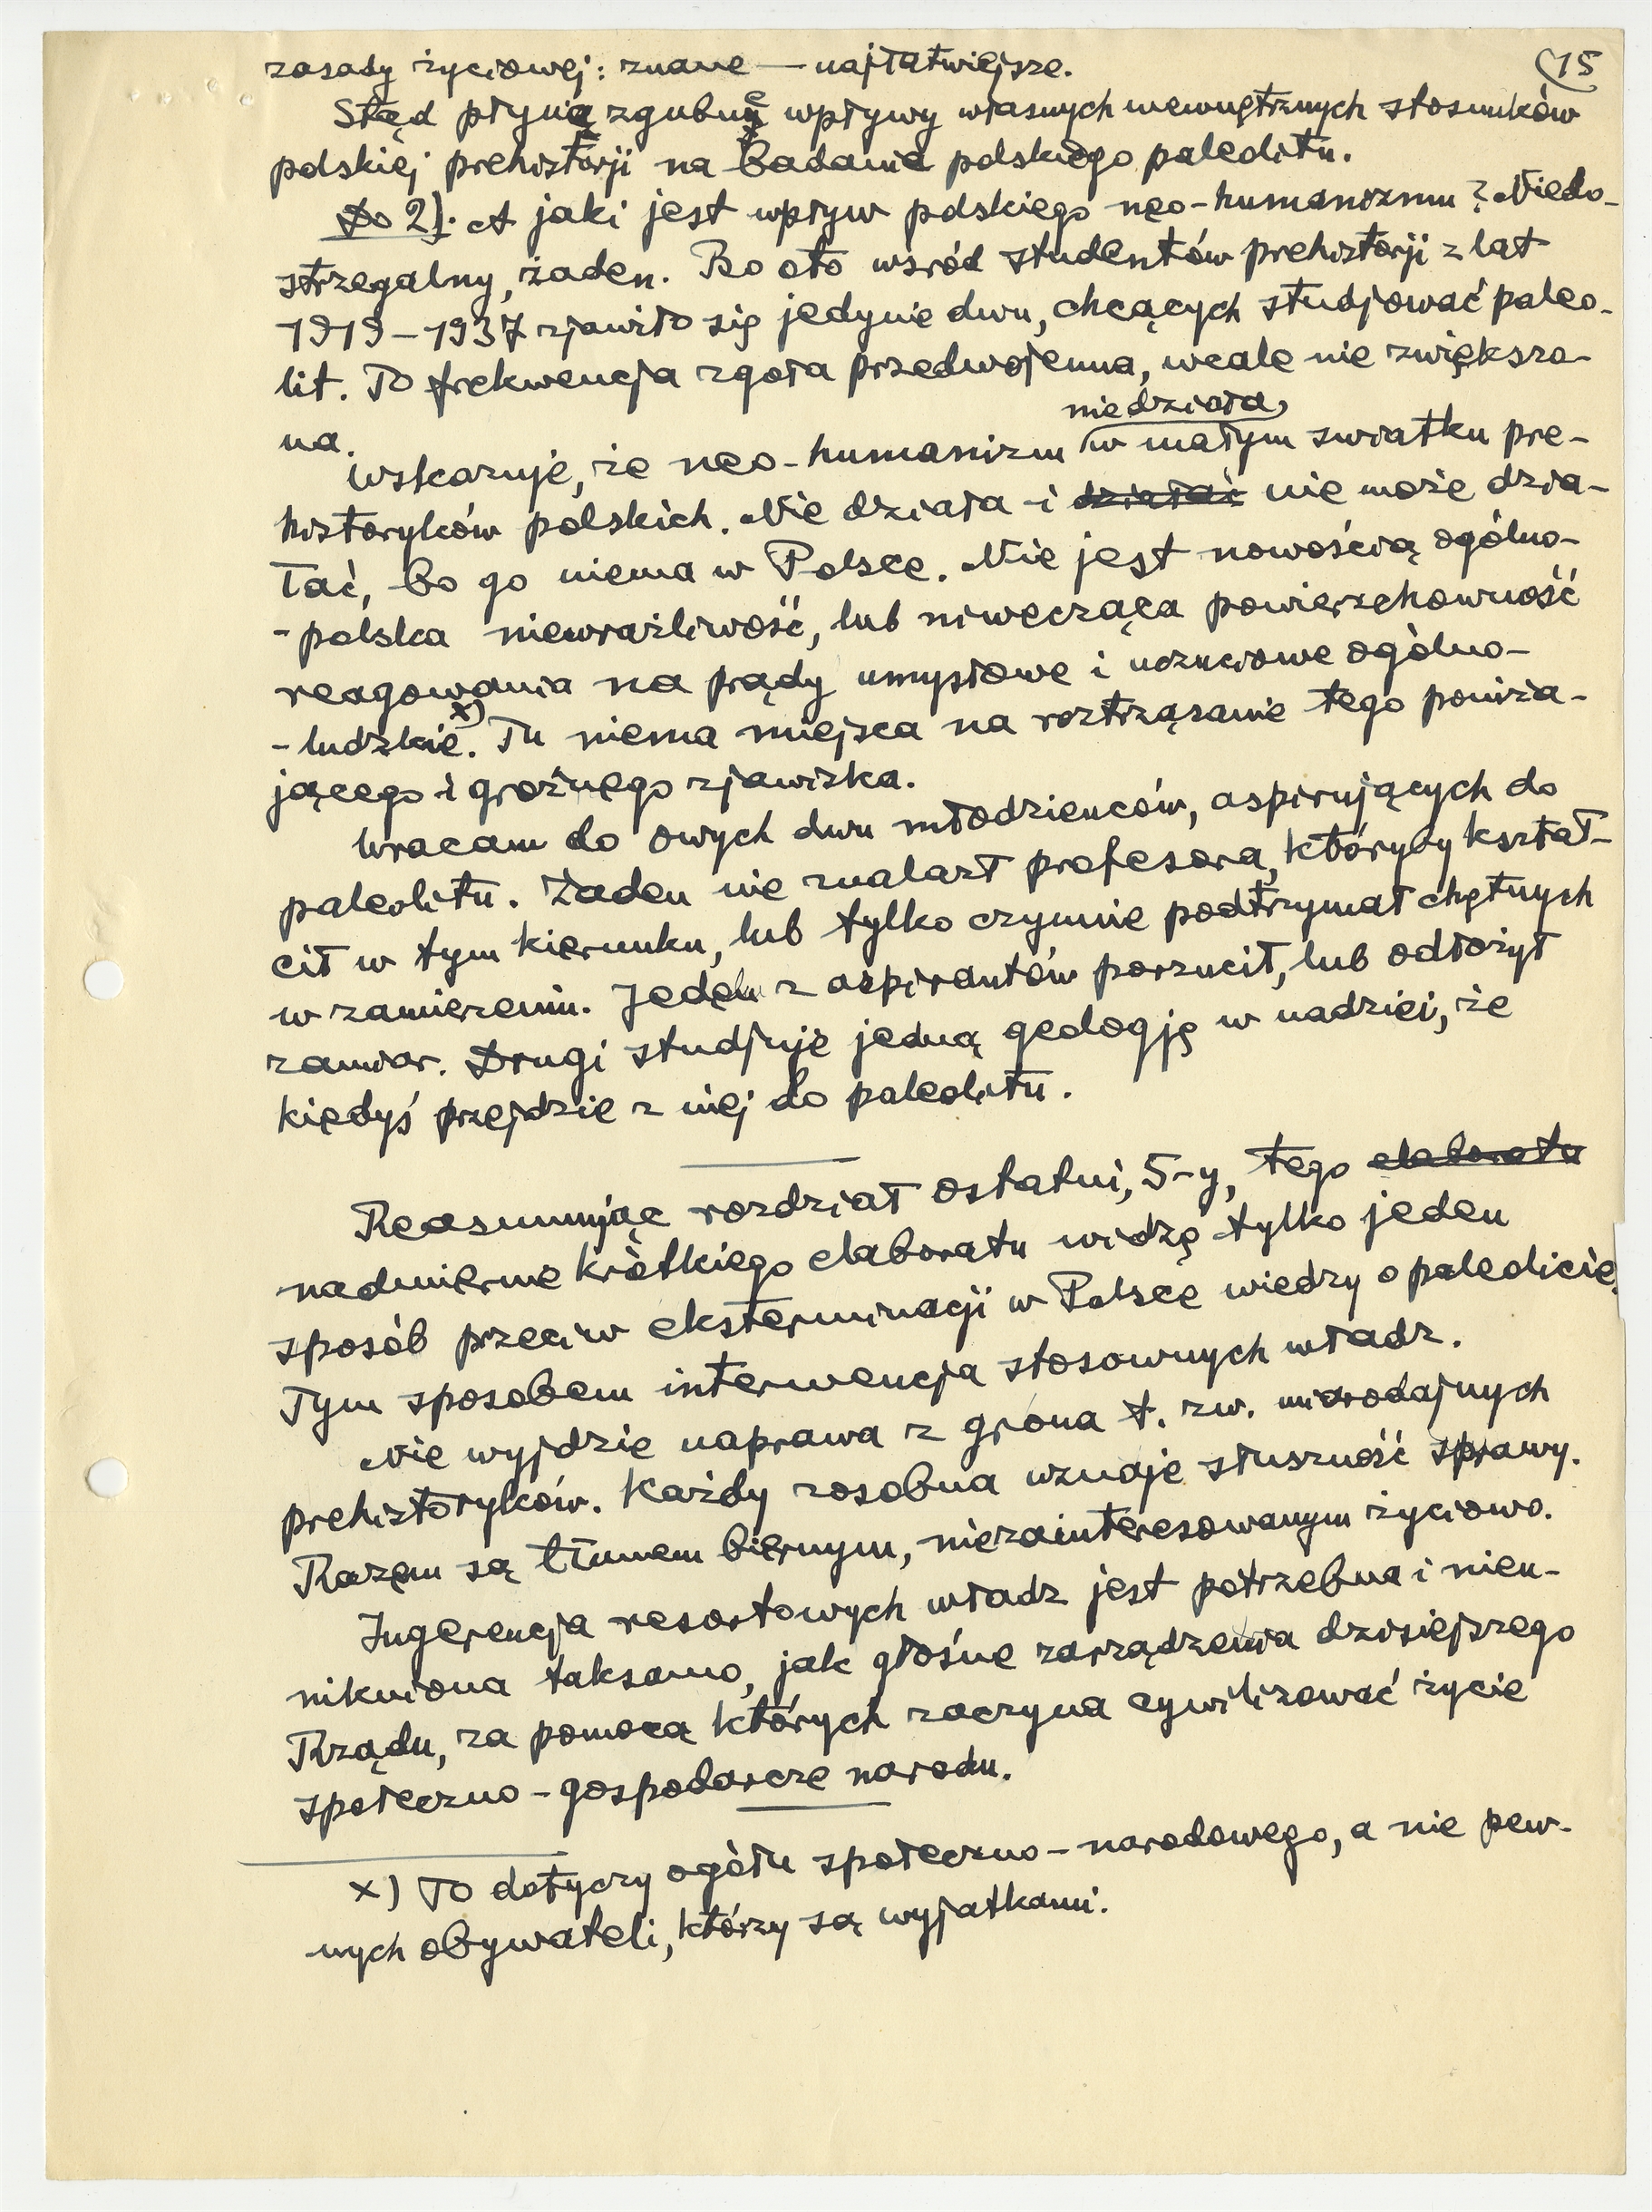 15
zasady życiowej: znane — najłatwiejsze.
Stąd płyną zgubne wpływy własnych wewnętrznych stosunków
polskiej prehistorji na badania polskiego paleolitu.
Do 2). A jaki jest wpływ polskiego neo-humanizmu? Niedo-
strzegalny, żaden. Bo oto wśród studentów prehistorji z lat
1919–1937 zjawiło się jedynie dwu, chcących studjować paleo-
lit. To frekwencja zgoła przedwojenna, wcale nie zwiększo-
na.
niedziała,
Wskazuje, że neo-humanizm w małym światku pre-
historyków polskich. Nie działa i działać nie może dzia-
łać, bo go niema w Polsce. Nie jest nowością ogólno-
-polska niewrażliwość, lub niwecząca powierzchowność
reagowania na prądy umysłowe i uczuciowe ogólno-
-ludzkie. x) Tu niema miejsca na roztrząsanie tego poniża-
jącego i groźnego zjawiska.
Wracam do owych dwu młodzieńców, aspirujących do
paleolitu. Żaden nie znalazł profesora, któryby kształ-
cił w tym kierunku, lub tylko czynnie podtrzymał chętnych
w zamierzeniu. Jeden z aspirantów porzucił, lub odłożył
zamiar. Drugi studjuje jedną geologję w nadziei, że
kiedyś przejdzie z niej do paleolitu.
Reasumując rozdział ostatni, 5-y, tego elaboratu
nadmiernie krótkiego elaboratu widzę tylko jeden
sposób przeciw eksterminacji w Polsce wiedzy o paleolicie.
Tym sposobem interwencja stosownych władz.
Nie wyjdzie naprawa z grona t. zw. miarodajnych
prehistoryków. Każdy zosobna uznaje słuszność sprawy.
Razem są tłumem biernym, niezainteresowanym życiowo.
Ingerencja resortowych władz jest potrzebna i nieu-
nikniona taksamo, jak głośne zarządzenia dzisiejszego
Rządu, za pomocą których zaczyna cywilizować życie
społeczno-gospodarcze narodu.
x) To dotyczy ogółu społeczno-narodowego, a nie pew-
nych obywateli, którzy są wyjątkami.